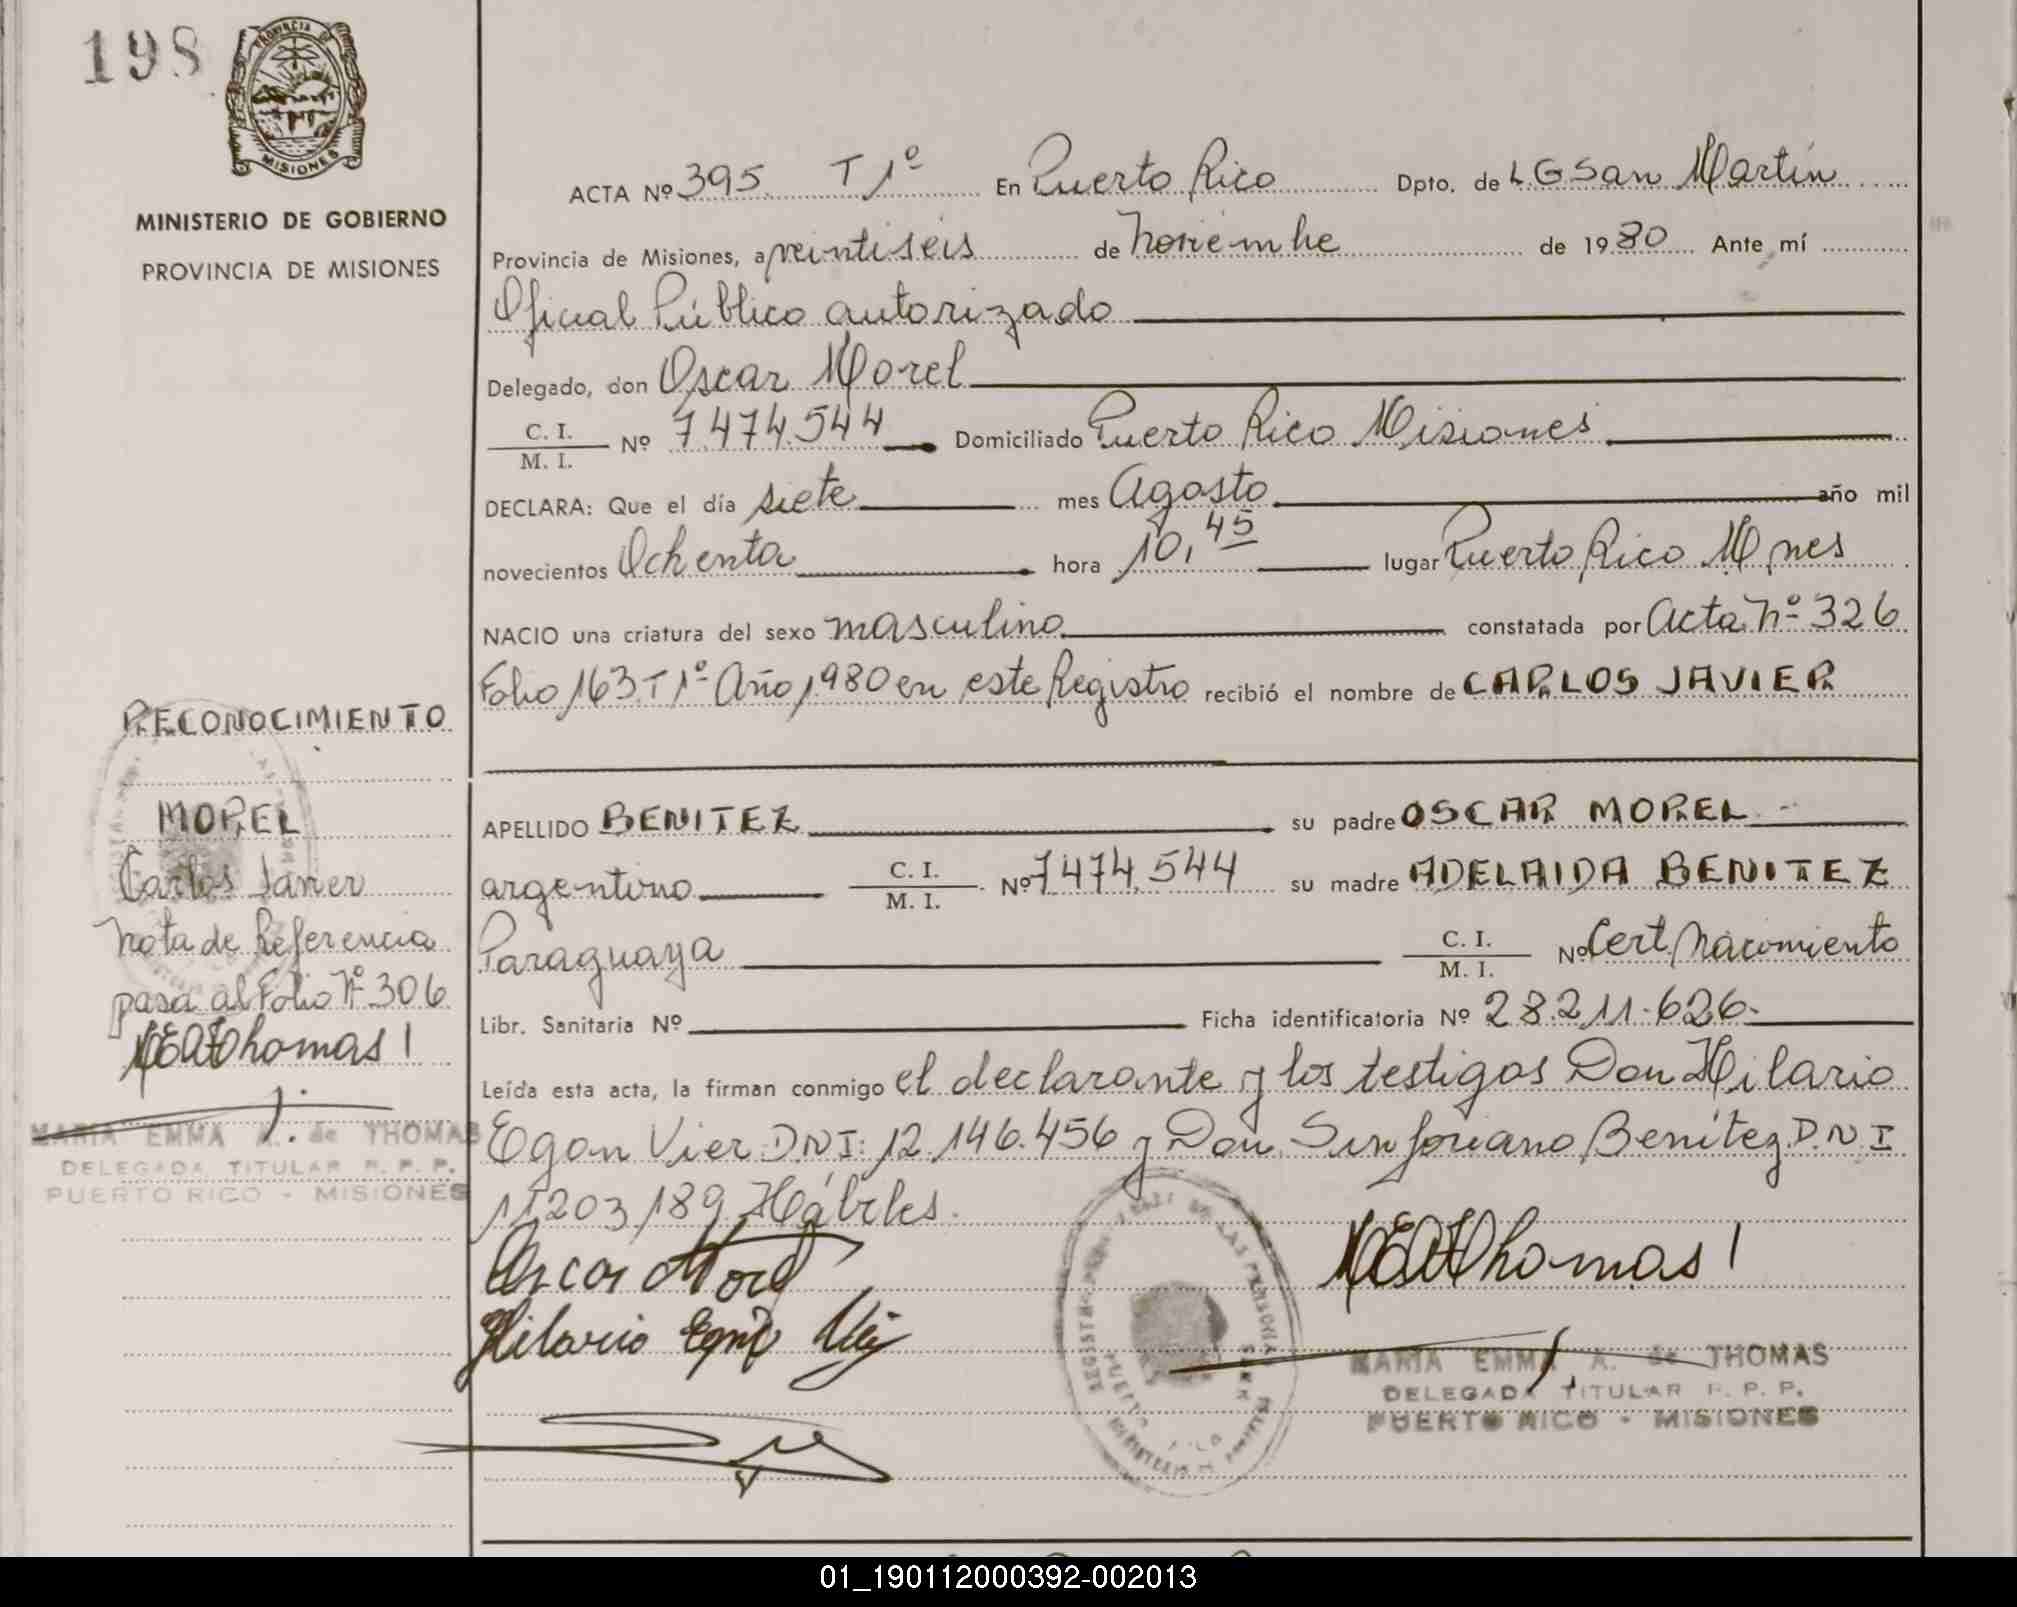 198
PROVINCIA DE
MISIONES
MINISTERIO DE GOBIERNO
PROVINCIA DE MISIONES
ACTA Nº 395 T 1º En Puerto Rico Dpto. de L.G San Martín
Provincia de Misiones, a veintiseis de noviembre de 1980 Ante mí
Oficial Público autorizado
Delegado, don Oscar Morel
C. I.
M. I.
Nº 7.474.544 Domiciliado Puerto Rico Misiones
DECLARA: Que el día siete mes Agosto año mil
novecientos Ochenta hora 10,45 lugar Puerto Rico Mnes
NACIO una criatura del sexo masculino constatada por Acta Nº 326
Folio 163 T 1º Año 1980 en este Registro recibió el nombre de CARLOS JAVIER
APELLIDO BENITEZ su padre OSCAR MOREL
argentino C. I.
M. I.
Nº 7474.544 su madre ADELAIDA BENITEZ
Paraguaya C. I.
M. I.
Nº Cert. Nacimiento
Libr. Sanitaria Nº Ficha identificatoria Nº 28.211.626.
Leída esta acta, la firman conmigo el declarante y los testigos Don Hilario
Egon Vier D.N.I: 12.146.456 y Don Sinforiano Benítez D.N.I
11.203.189 Hábiles.
Oscar Morel
Hilario Egon Vier
MEAThomas
MARIA EMMA A. de THOMAS
DELEGADA TITULAR R. P. P.
PUERTO RICO - MISIONES
RECONOCIMIENTO
MOREL
Carlos Javier
Nota de Referencia
pasa al Folio Nº 306
MEAThomas
MARIA EMMA A. de THOMAS
DELEGADA TITULAR R. P. P.
PUERTO RICO - MISIONES
01_190112000392-002013